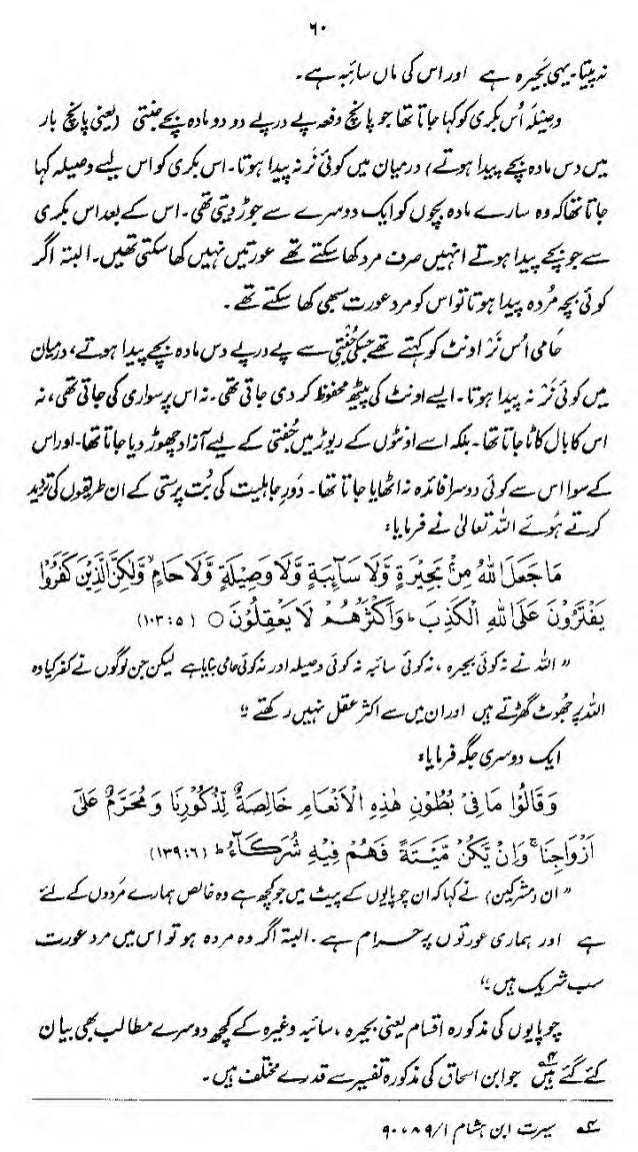 ۶۰
نہ پیتا۔ یہی بَحیرہ ہے اور اس کی ماں سائبہ ہے۔
وصِیْلَہ اُس بکری کو کہا جاتا تھا جو پانچ دفعہ پے در پے دو دو مادہ بچے جنتی (یعنی پانچ بار
میں دس مادہ بچے پیدا ہوتے) درمیان میں کوئی نَر نہ پیدا ہوتا۔ اس بکری کو اس لیے وصیلہ کہا
جاتا تھا کہ وہ سارے مادہ بچوں کو ایک دوسرے سے جوڑ دیتی تھی۔ اس کے بعد اس بکری
سے جو بچے پیدا ہوتے انہیں صرف مرد کھا سکتے تھے عورتیں نہیں کھا سکتی تھیں۔ البتہ اگر
کوئی بچہ مُردہ پیدا ہوتا تو اس کو مرد عورت سبھی کھا سکتے تھے۔
حَامی اُس نَر اونٹ کو کہتے تھے جسکی جُفتی سے پے در پے دس مادہ بچے پیدا ہوتے، درمیان
میں کوئی نَر نہ پیدا ہوتا۔ ایسے اونٹ کی پیٹھ محفوظ کر دی جاتی تھی۔ نہ اس پر سواری کی جاتی تھی، نہ
اس کا بال کاٹا جاتا تھا۔ بلکہ اسے اونٹوں کے ریوڑ میں جُفتی کے لیے آزاد چھوڑ دیا جاتا تھا۔ اور اس
کے سوا اس سے کوئی دوسرا فائدہ نہ اٹھایا جاتا تھا۔ دَورِ جاہلیت کی بُت پرستی کے ان طریقوں کی تردید
کرتے ہُوئے اللہ تعالیٰ نے فرمایا:
مَا جَعَلَ اللّٰهُ مِنْۢ بَحِيْرَةٍ وَّلَا سَآئِبَةٍ وَّلَا وَصِيْلَةٍ وَّلَا حَامٍ ۙ وَّلٰكِنَّ الَّذِيْنَ كَفَرُوْا
يَفْتَرُوْنَ عَلَى اللّٰهِ الْكَذِبَ ؕ وَاَكْثَرُهُمْ لَا يَعْقِلُوْنَ ○ (۱۰۳:۵)
” اللہ نے نہ کوئی بحیرہ، نہ کوئی سائبہ نہ کوئی وصیلہ اور نہ کوئی حامی بنایا ہے لیکن جن لوگوں نے کفر کیا وہ
اللہ پر جھوٹ گھڑتے ہیں اور ان میں سے اکثر عقل نہیں رکھتے۔“
ایک دوسری جگہ فرمایا:
وَقَالُوْا مَا فِيْ بُطُوْنِ هٰذِهِ الْاَنْعَامِ خَالِصَةٌ لِّذُكُوْرِنَا وَمُحَرَّمٌ عَلٰٓى
اَزْوَاجِنَا ۚ وَاِنْ يَّكُنْ مَّيْتَةً فَهُمْ فِيْهِ شُرَكَآءُ ؕ (۱۳۹:۶)
” ان (مشرکین) نے کہا کہ ان چوپایوں کے پیٹ میں جو کچھ ہے وہ خالص ہمارے مَردوں کے لئے
ہے اور ہماری عورتوں پر حرام ہے۔ البتہ اگر وہ مردہ ہو تو اس میں مرد عورت
سب شریک ہیں۔“
چوپایوں کی مذکورہ اقسام یعنی بحیرہ، سائبہ وغیرہ کے کچھ دوسرے مطالب بھی بیان
کئے گئے ہیں ۴؎ جو ابن اسحاق کی مذکورہ تفسیر سے قدرے مختلف ہیں۔
۴؎ سیرت ابن ہشام ۱/ ۸۹، ۹۰